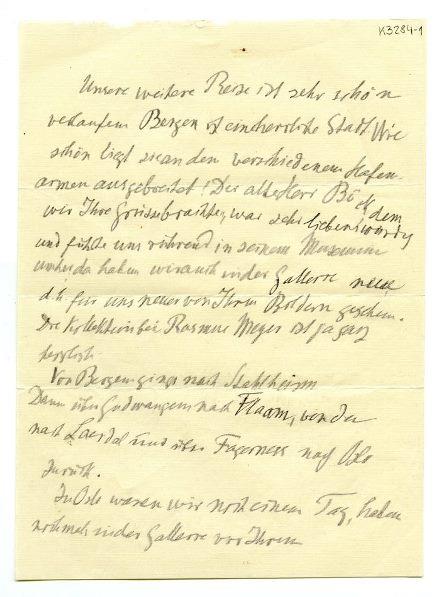 K3284-1
Unsere weitere Reise ist sehr schön
verlaufen. Bergen ist eine herrliche Stadt. Wie
schön liegt sie an den verschiedenen Hafen-
armen ausgebreitet! Der alte Herr Böck dem
wir Ihre Grüsse brachten, war sehr liebenswürdig
und führte uns rührend in seinem Museum
umher da haben wir auch in der Gallerie neue
d.h. für uns neue von Ihren Bildern gesehen.
Die Kollektion bei Rasmus Meyer ist ja ganz
herrlich.
Von Bergen gings nach Stahlheim
Dann über Gudwangen nach Flaam, von da
nach Laerdal und über Fagernes nach Oslo
zurück.
In Oslo waren wir noch einen Tag, haben
nochmals in der Gallerie vor Ihren